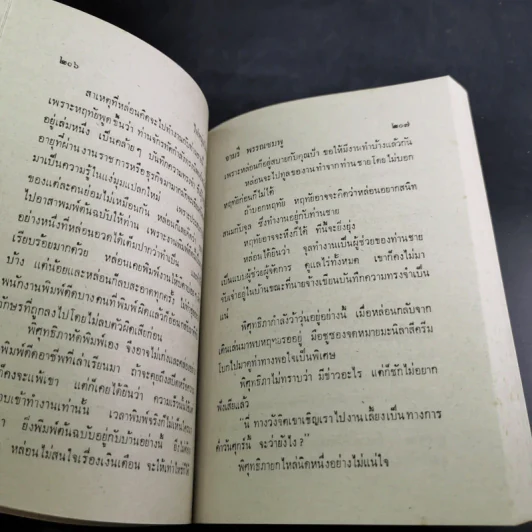 ๒๐๖
สาเหตุที่หล่อนคิดจะไปทำงาน
เพราะหฤทัยพูดขึ้นว่า ท่านจักรพัตกำลัง
อยู่เล่มหนึ่ง เป็นคล้ายๆ บันทึกความทรงจำ
อายุที่ผ่านงานราชการหรือธุรกิจมามาก
มาเป็นความรู้ในแง่มุมแปลกใหม่
ของแต่ละคนย่อมไม่เหมือนกัน
ไปอาสาพมพ์ต้นฉบับให้ท่าน เพราะงานพิมพ์
อย่างหนึ่งที่หล่อนอวดได้เต็มปากว่าทำเป็น
เรียบร้อยมากด้วย หล่อนเคยพิมพ์งานให้
บ้าง แต่น้อยและหล่อนก็ลบสะอาดทุกครั้ง
พนักงานพิมพ์ดีดบางคนที่พิมพ์ผิดแล้วก็
กษรที่ถูกลงไปโดยไม่ลบตัวผิดเสียก่อน
พิศุทธิภาหัดพิมพ์เอง จึงอาจไม่เก่ง
พิมพ์ดีดอาชีพที่เล่าเรียนมา ถ้าจะคุยถึง
ก็คงจะแพ้เขา แต่ก็เคยได้ยินว่า ความเร็ว
เข้าทำงานเท่านั้น เวลาพิมพ์จริงก็ไม่เห็น
ยิ่งพิมพ์ต้นฉบับอยู่กับบ้านอย่างนี้ ยิ่งไม่ต้อง
หล่อนไม่สนใจเรื่องเงินเดือน จะให้เท่าไหร่ก็ได้
ชามรี พรรณชมพู
๒๐๗
เพราะหล่อนก็อยู่สบายกับคุณป้า ขอให้มีงานทำบ้างแล้วกัน
หล่อนจะไปทูลของานทำจากท่านชายโดยไม่บอก
หฤทัยก่อนก็ไม่ได้
ถ้าบอกหฤทัย หฤทัยอาจจะคิดว่าหล่อนอยากสนิท
สนมกับจุล ซึ่งทำงานอยู่กับท่านชาย
หฤทัยอาจจะหึงก็ได้ ทีนี้จะยิ่งยุ่ง
หล่อนได้ยินว่า จุลทำงานเป็นผู้ช่วยของท่านชาย
เป็นแบบผู้ช่วยผู้จัดการ ดูแลไร่ทั้งหมด เขาก็คงไม่มา
จับเจ่าอยู่ในบ้านขณะที่นายจ้างเขียนบันทึกความทรงจำเป็น
แน่
พิศุทธิภากำลังว้าวุ่นอยู่อย่างนี้ เมื่อหล่อนกลับจาก
เดินเล่นมาพบหฤทัยรออยู่ มือชูซองจดหมายมะนิลาสีครีม
โบกไปมาดูท่าทางพอใจเป็นพิเศษ
พิศุทธิภาไม่ทราบว่า มีข่าวอะไร แต่ก็ชักไม่อยาก
ฟังเสียแล้ว
“นี่ ทางวังจิตเขาเชิญเราไปงานเลี้ยงเป็นทางการ
ค่ำวันศุกร์นี้ จะว่ายังไง?”
พิศุทธิภายกไหล่นิดหนึ่งอย่างไม่แน่ใจ